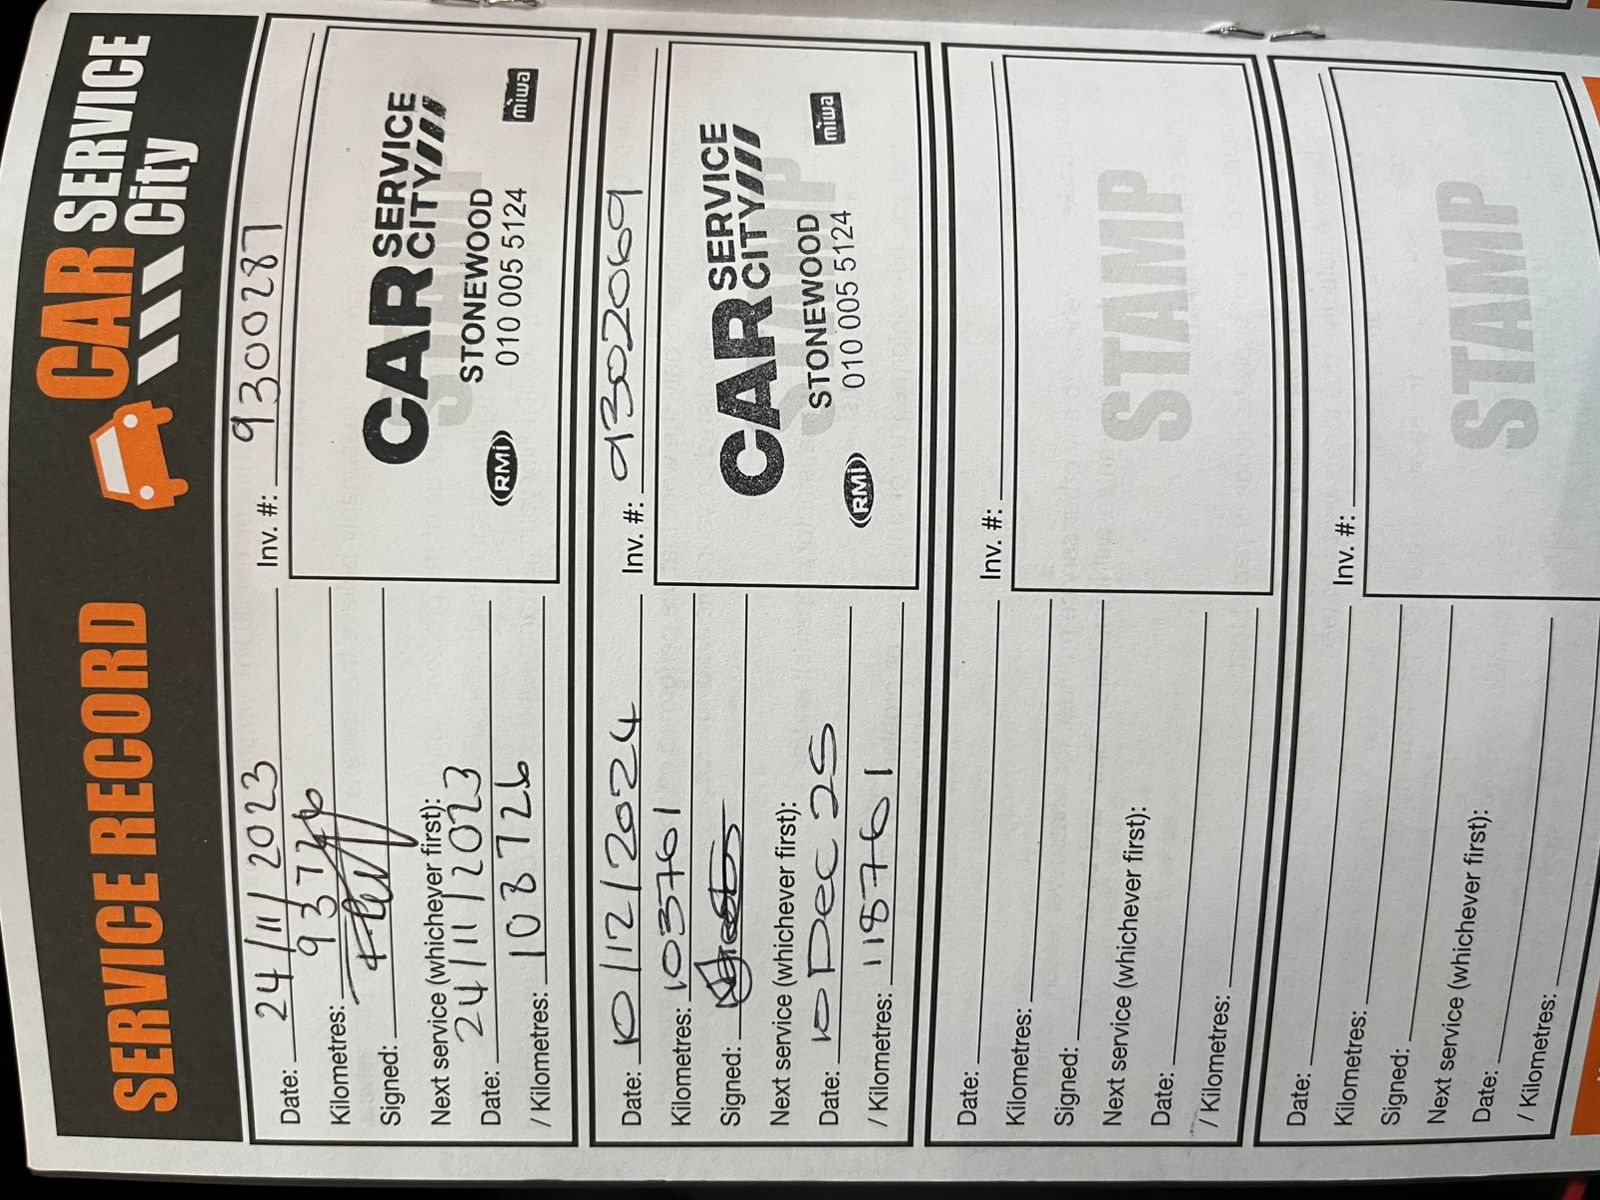 SERVICE RECORD
CAR SERVICE
City
Date: 24/11/2023 Inv. #: 9300287
Kilometres: 93726
Signed:
Next service (whichever first):
Date: 24/11/2023
/ Kilometres: 108726
STAMP
CAR SERVICE
CITY
STONEWOOD
010 005 5124
RMi
miwa
Date: 10/12/2024 Inv. #: 9302069
Kilometres: 103761
Signed:
Next service (whichever first):
Date: 10 DEC 25
/ Kilometres: 118761
STAMP
CAR SERVICE
CITY
STONEWOOD
010 005 5124
RMi
miwa
Date: Inv. #:
Kilometres:
Signed:
Next service (whichever first):
Date:
/ Kilometres:
STAMP
Date: Inv. #:
Kilometres:
Signed:
Next service (whichever first):
Date:
/ Kilometres:
STAMP